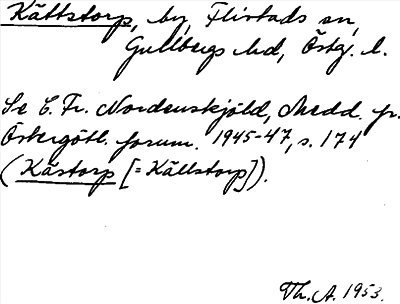 Källstorp, by, Flistads sn,
Gullbergs hd, Östg. l.
Se C. Fr. Nordenskjöld, Medd. fr.
Östergötl. fornm. 1945-47, s. 174
(Kästorp [= Källstorp]).
Th. A. 1953.